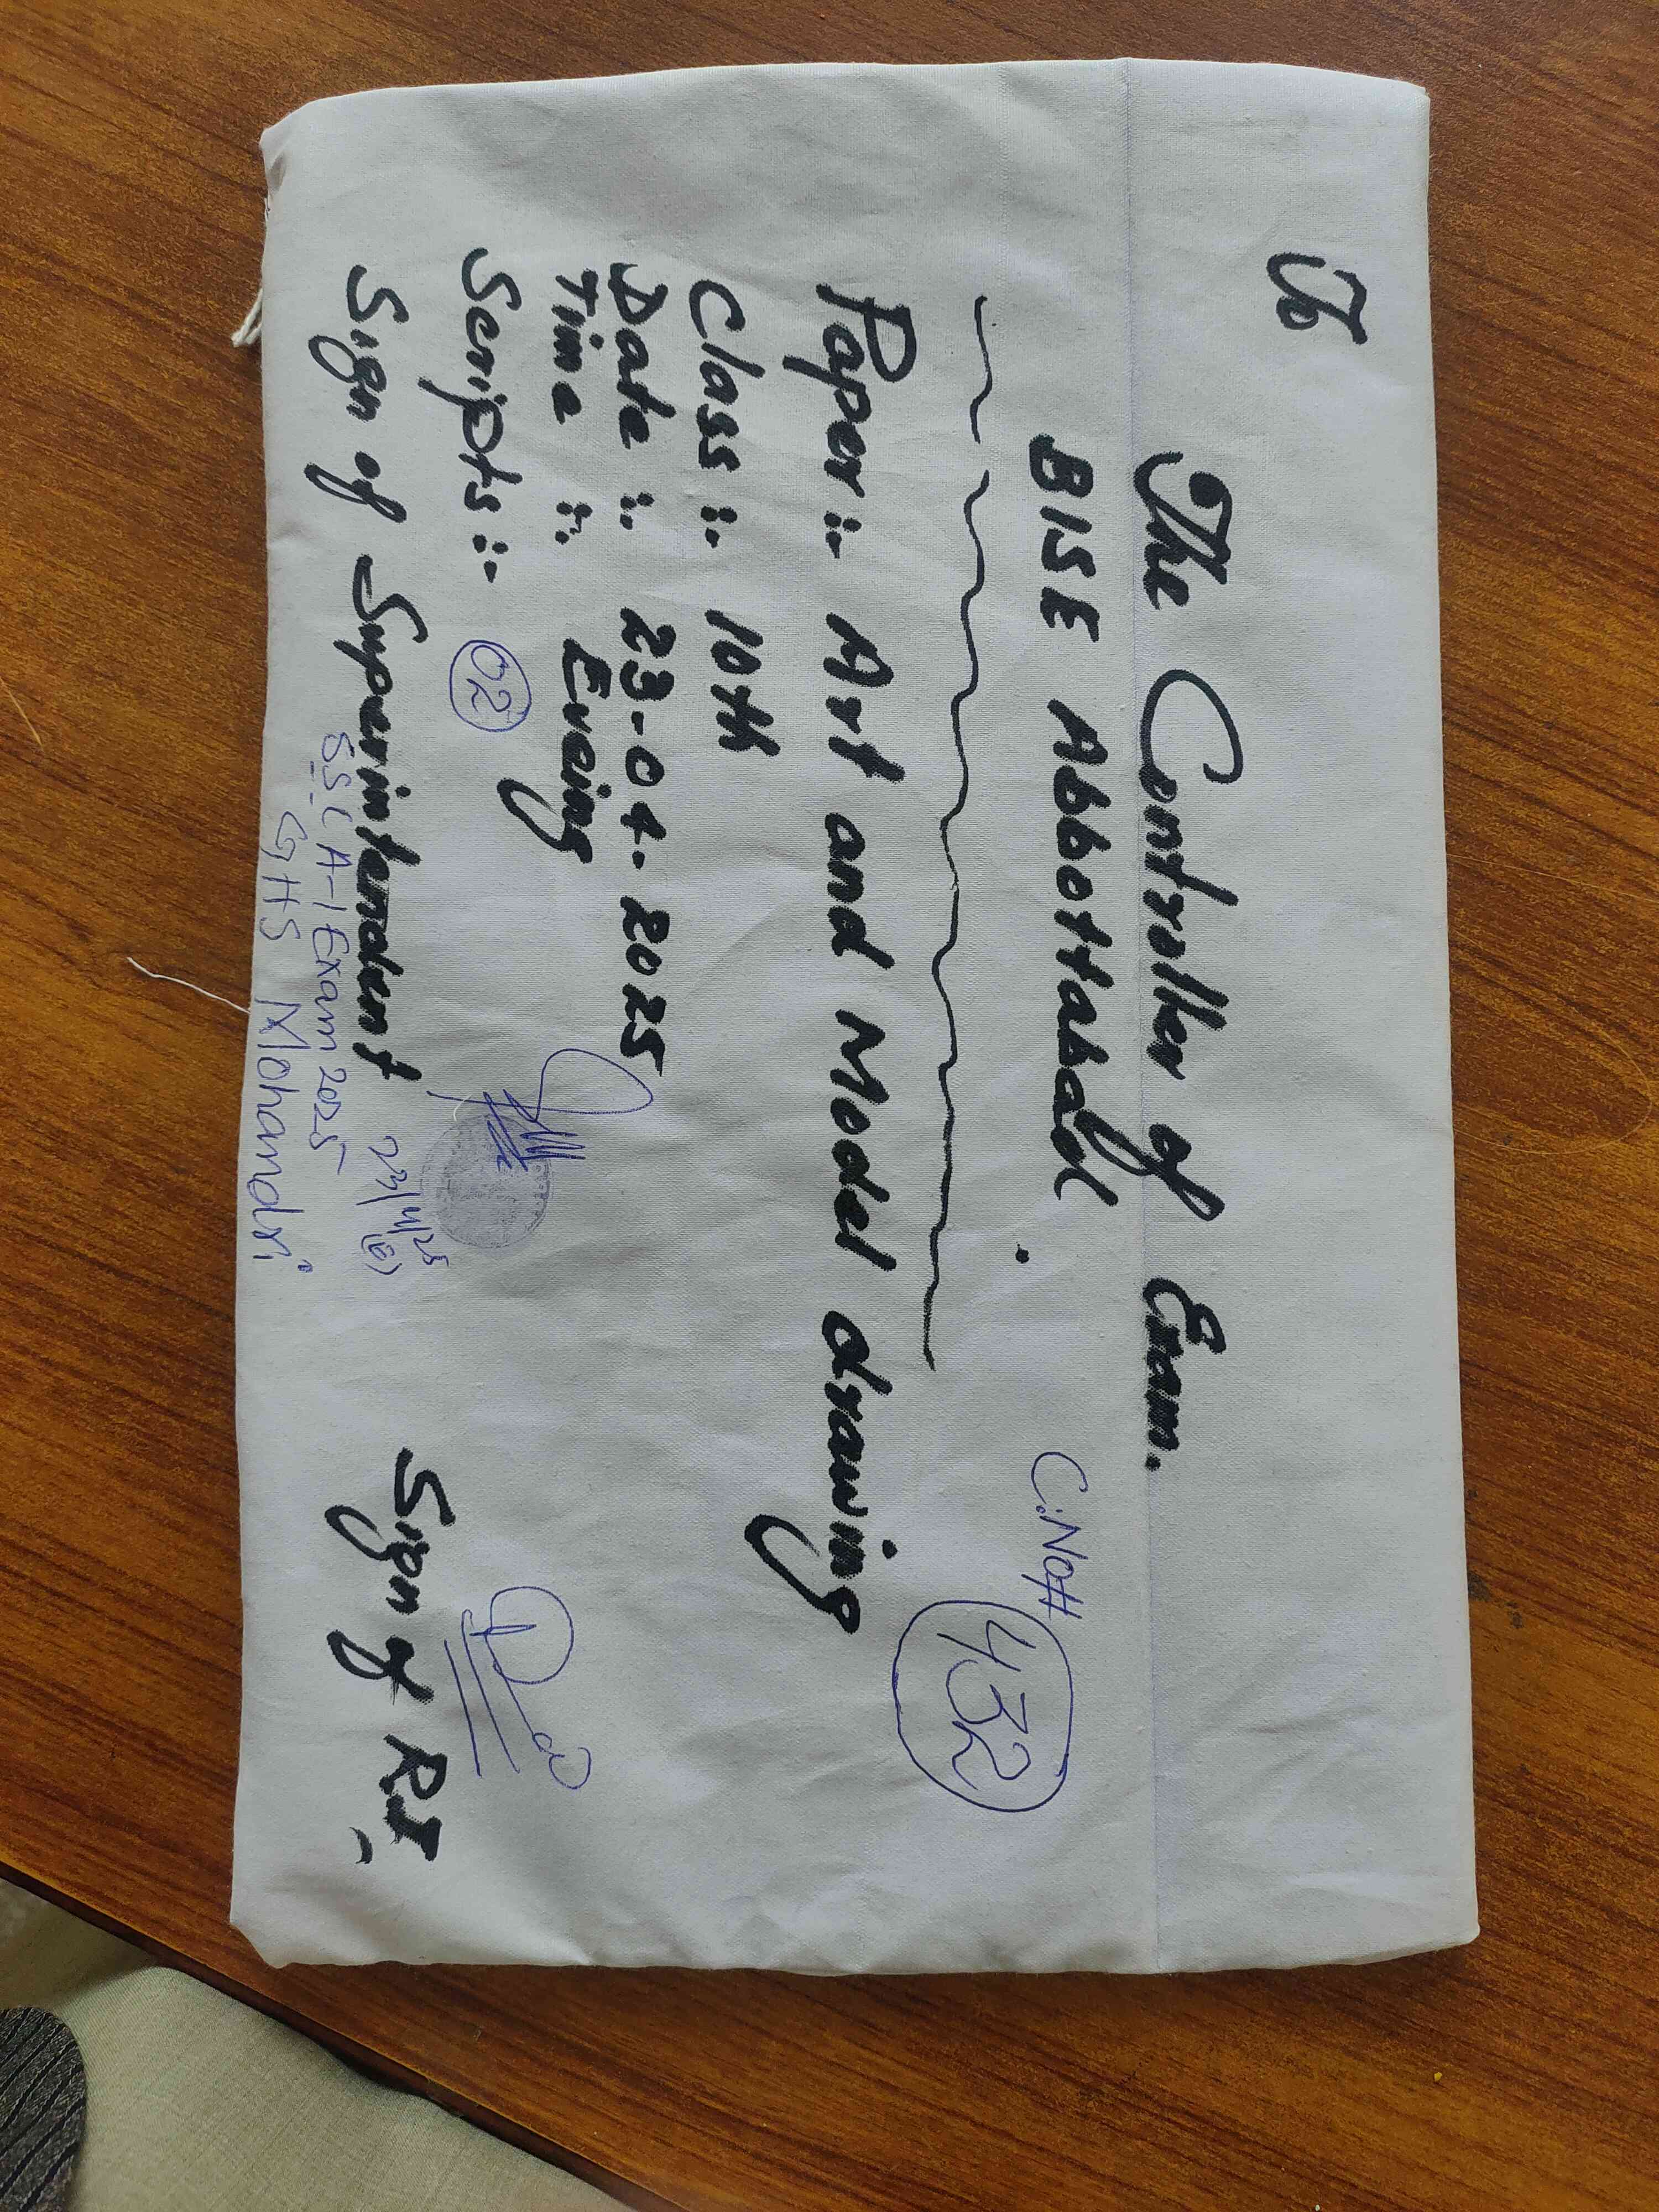 To
The Controller of Exam.
BISE Abbottabad.
C.No# 432
Paper:- Art and Model drawing
Class:- 10th
Date:- 23-04-2025
Time:- Eveing
Scripts:- 02
Sign of Superintendent
Sign of RI
23/4/25
(E)
SSC A-I Exam 2025
GHS Mohandri